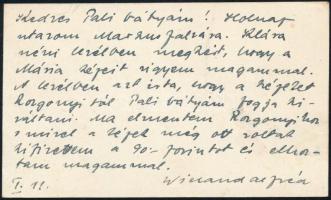 Kedves Pali bátyám! Holnap
utazom Markusfalvára. Klára
néni levélben megkért, hogy a
Mária képeit vigyem magammal.
A levélben azt írta, hogy a képeket
Rozgonyitól Pali bátyám fogja ki-
váltani. Ma elmentem Rozgonyihoz
s mivel a képek még ott voltak
kifizettem a 90.- forintot és elhoz-
tam magammal.
Wieland Alfréd
V. 11.